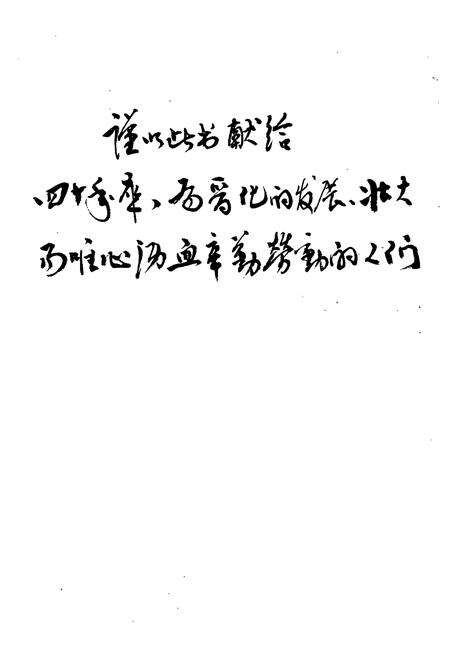 谨以此书献给
四十年来、为晋化的发展、壮大
而呕心沥血辛勤劳动的人们